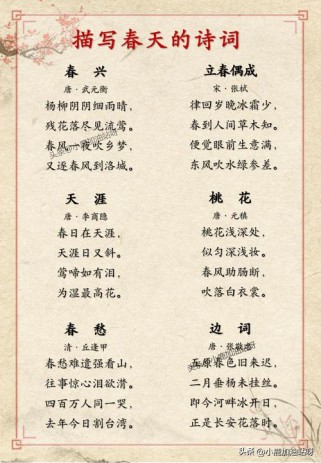 描写春天的诗词
春 兴
唐·武元衡
杨柳阴阴细雨晴，
残花落尽见流莺。
春风一夜吹乡梦，
又逐春风到洛城。
立春偶成
宋·张栻
律回岁晚冰霜少，
春到人间草木知。
便觉眼前生意满，
东风吹水绿参差。
天 涯
唐·李商隐
春日在天涯，
天涯日又斜。
莺啼如有泪，
为湿最高花。
桃 花
唐·元稹
桃花浅深处，
似匀深浅妆。
春风助肠断，
吹落白衣裳。
春 愁
清·丘逢甲
春愁难遣强看山，
往事惊心泪欲潸。
四百万人同一哭，
去年今日割台湾。
边 词
唐·张敬忠
五原春色旧来迟，
二月垂杨未挂丝。
即今河畔冰开日，
正是长安花落时。
头条 @小熊加油站呀